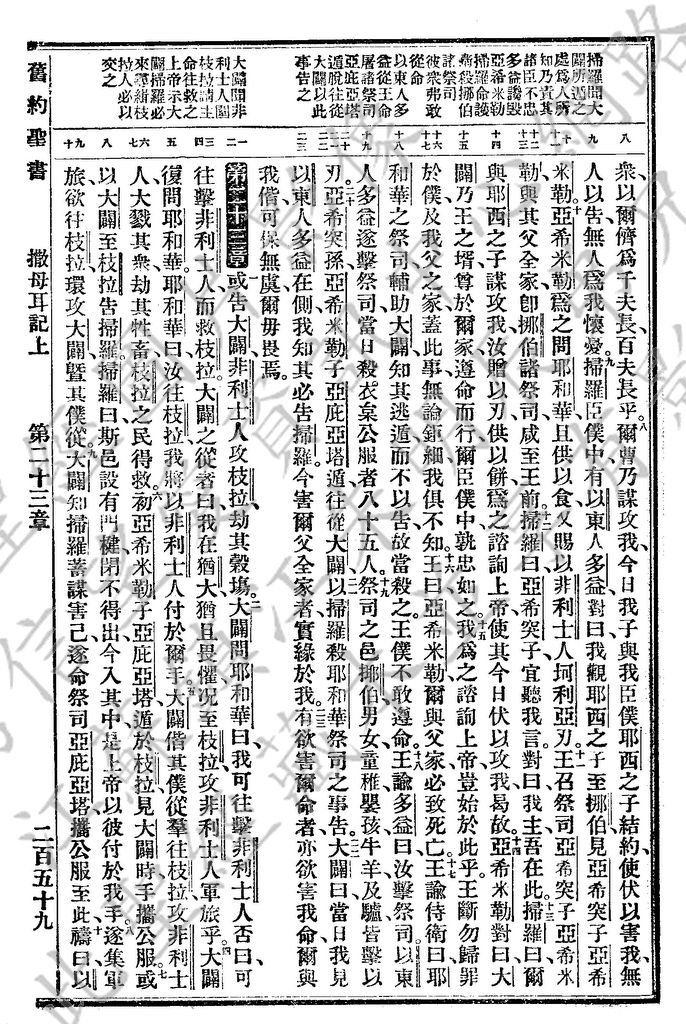 舊約聖書
撒母耳記上
第二十三章
二百五十九
掃羅聞大
闢所遇之
處爲人所
知乃責其
諸臣不忠
多益讒毀
亞希米勒
掃羅命護
衛殺挪伯
諸祭司
彼衆弗敢
從命
以東人多
益從王命
屠諸祭司
亞庇亞塔
遁脫往從
大闢以此
事告之
大闢聞非
利士人圍
枝拉請主
命往救之
上帝示大
闢掃羅必
來尋維枝
拉人必以
交之
八
衆以爾儕爲千夫長百夫長乎、八爾曹乃謀攻我、今日我子與我臣僕耶西之子結約、使伏以害我、無
九
人以告、無人爲我懷憂、九掃羅臣僕中有以東人多益、對曰、我觀耶西之子至挪伯、見亞希突子亞希
十十一
米勒、十亞希米勒爲之問耶和華、且供以食、又賜以非利士人坷利亞刃、十一王召祭司亞希突子亞希米
十二十三
勒、與其父全家、卽挪伯諸祭司、咸至王前、十二掃羅曰、亞希突子、宜聽我言、對曰、我主、吾在此、十三掃羅曰、爾
十四
與耶西之子謀攻我、汝贈以刃、供以餅、爲之諮詢上帝、使其今日伏以攻我、曷故、十四亞希米勒對曰、大
十五
闢乃王之壻、尊於爾家、遵命而行、爾臣僕中孰忠如之、十五我爲之諮詢上帝、豈始於此乎、王斷勿歸罪
十六十七
於僕、及我父之家、蓋此事無論鉅細、我俱不知、十六王曰、亞希米勒、爾與父家必致死亡、十七王諭侍衛曰、耶
十八
和華之祭司、輔助大闢、知其逃遁、而不以告、故當殺之、王僕不敢遵命、十八王諭多益曰、汝擊祭司、以東
十九
人多益遂擊祭司、當日殺衣枲公服者八十五人、十九祭司之邑挪伯、男女童稚嬰孩、牛羊及驢、皆擊以
二十二十一
刃、二十亞希突孫、亞希米勒子亞庇亞塔、遁往從大闢、二十一以掃羅殺耶和華祭司之事告、二十二大闢曰、當日我見
二十二二十三
以東人多益在側、我知其必告掃羅、今害爾父全家者、實緣於我、二十三有欲害爾命者、亦欲害我命、爾與
我偕、可保無虞、爾毋畏焉。
一二
第二十三章 或告大闢、非利士人攻枝拉、劫其穀塲、二大闢問耶和華曰、我可往擊非利士人否、曰、可
三四
往擊非利士人、而救枝拉、三大闢之從者曰、我在猶大、猶且畏懼、況至枝拉、攻非利士人軍旅乎、四大闢
五
復問耶和華、耶和華曰、汝往枝拉、我將以非利士人付於爾手、五大闢偕其僕從、羣往枝拉、攻非利士
六七
人、大戮其衆、劫其牲畜、枝拉之民得救、六初、亞希米勒子亞庇亞塔遁於枝拉、見大闢時、手攜公服、七或
八
以大闢至枝拉告掃羅、掃羅曰、斯邑設有門楗、閉不得出、今入其中、是上帝以彼付於我手、八遂集軍
九十
旅、欲往枝拉、環攻大闢曁其僕從、九大闢知掃羅蓄謀害己、遂命祭司亞庇亞塔攜公服至此、十禱曰、以